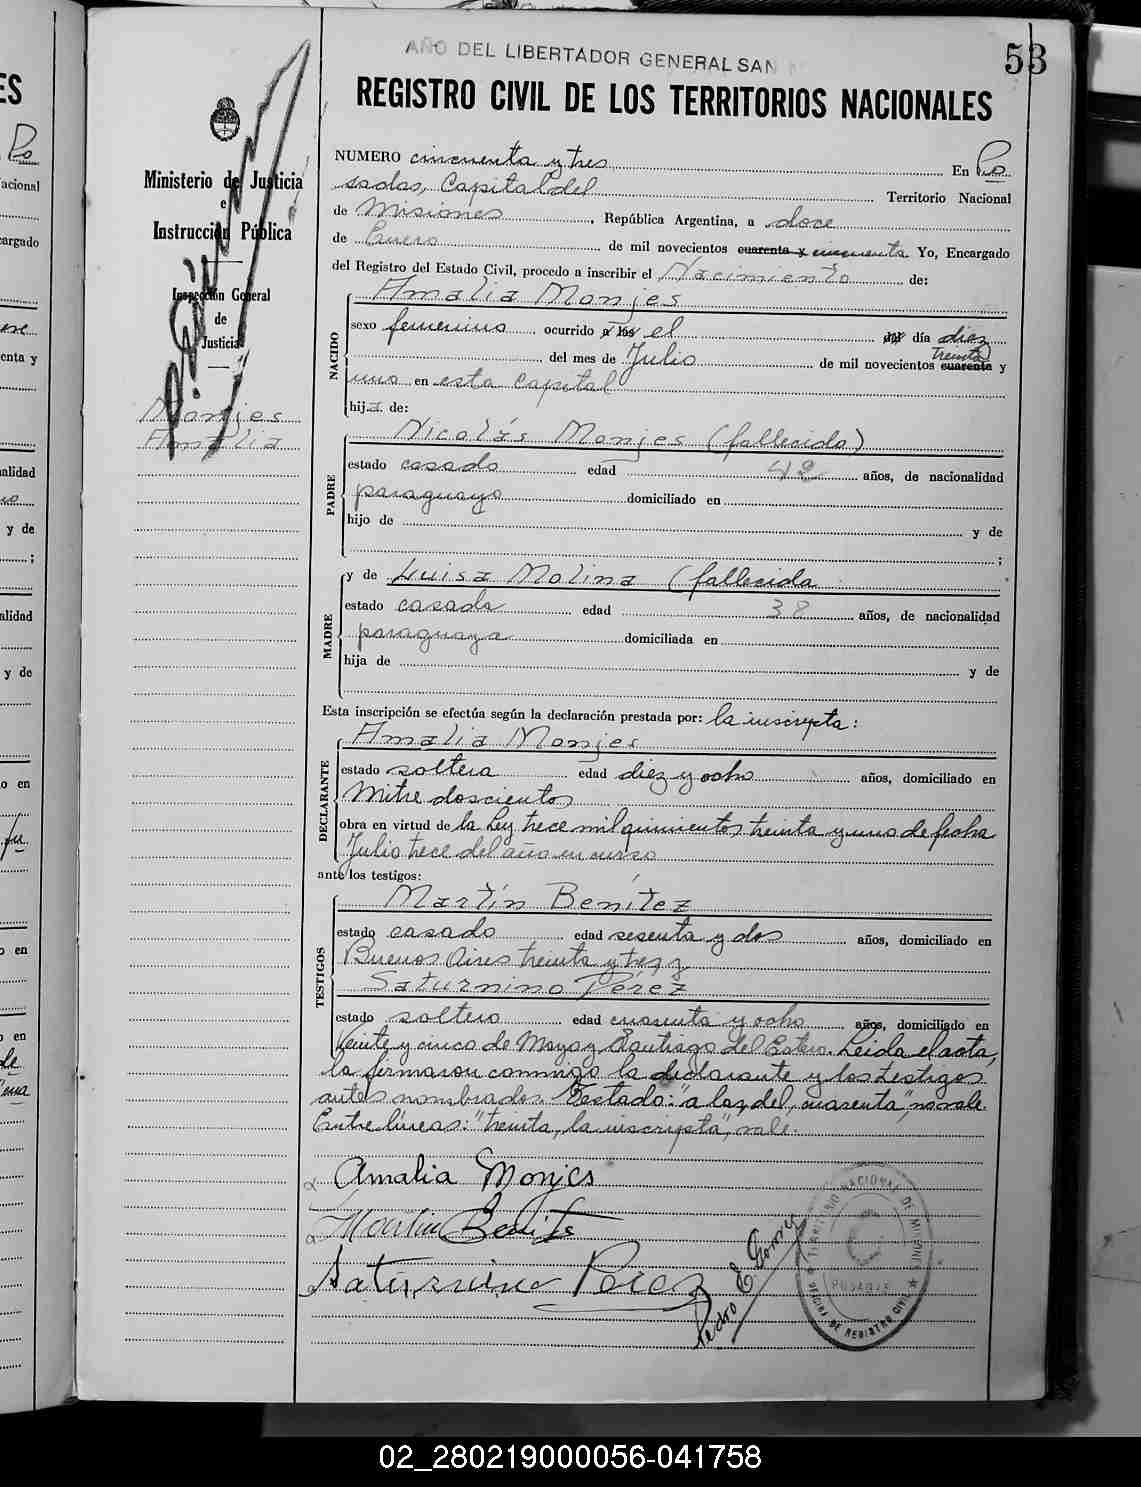 AÑO DEL LIBERTADOR GENERAL SAN
53
REGISTRO CIVIL DE LOS TERRITORIOS NACIONALES
Ministerio de Justicia
e
Instrucción Pública
Inspección General
de
Justicia
Monjes
Amalia
NUMERO cincuenta y tres En Po
sadas, Capital del Territorio Nacional
de Misiones, República Argentina, a doce
de Enero de mil novecientos cuarenta y cincuenta Yo, Encargado
del Registro del Estado Civil, procedo a inscribir el Nacimiento de:
NACIDO
Amalia Monjes
sexo femenino ocurrido a las el del día diez
treinta
del mes de Julio de mil novecientos cuarenta y
uno en esta Capital
hija de:
PADRE
Nicolás Monjes (fallecido)
estado casado edad 42 años, de nacionalidad
paraguayo domiciliado en
hijo de y de
;
MADRE
y de Luisa Molina (fallecida
estado casada edad 38 años, de nacionalidad
paraguaya domiciliada en
hija de y de
Esta inscripción se efectúa según la declaración prestada por: la inscripta:
DECLARANTE
Amalia Monjes
estado soltera edad diez y ocho años, domiciliado en
Mitre doscientos
obra en virtud de la Ley trece mil quinientos treinta y uno de fecha
Julio trece del año en curso
ante los testigos:
TESTIGOS
Martín Benítez
estado casado edad sesenta y dos años, domiciliado en
Buenos Aires treinta y tres y
Saturnino Pérez
estado soltero edad cuarenta y ocho años, domiciliado en
Veinte y cinco de Mayo y Santiago del Estero. Leida el acta,
la firmaron conmigo la declarante y los testigos
antes nombrados. Testado: "a las, del, cuarenta", no vale.
Entre líneas: "treinta, la inscripta", vale.
Amalia Monjes
Martin Benites
Saturnino Perez
Pedro E Gomez
TERRITORIO NACIONAL DE MISIONES
POSADAS
OFICINA DE REGISTRO CIVIL
02_280219000056-041758